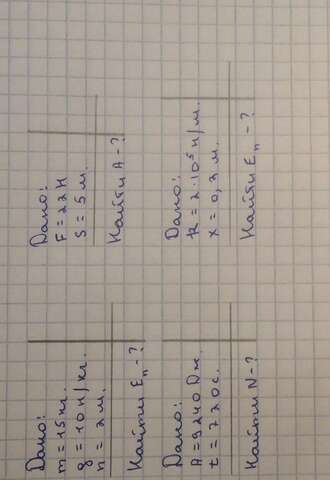 Дано:
m = 15 кг.
g = 10 н/кг.
h = 2 м.
Найти Eп - ?
Дано:
F = 22 Н
S = 5 м.
Найти A - ?
Дано:
A = 9240 Дж.
t = 220 с.
Найти N - ?
Дано:
k = 2·10⁵ н/м.
x = 0,2 м.
Найти Eп - ?